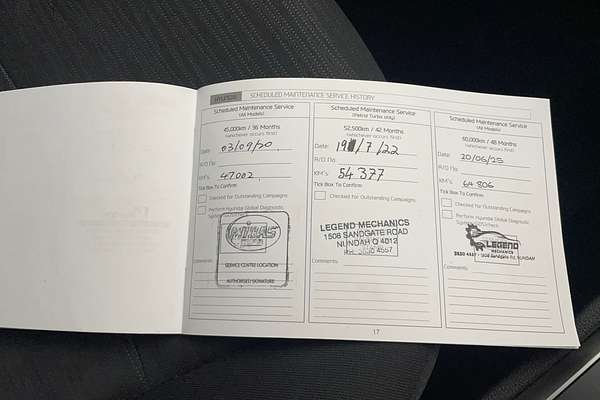 HYUNDAI SCHEDULED MAINTENANCE SERVICE HISTORY
Scheduled Maintenance Service
(All Models)
45,000km / 36 Months
(whichever occurs first)
Date: 03/09/20
R/O No:
KM's: 47002
Tick Box To Confirm
Checked for Outstanding Campaigns
Perform Hyundai Global Diagnostic
MIDAS
SERVICE CENTRE LOCATION
AUTHORISED SIGNATURE
Comments:
Scheduled Maintenance Service
(Petrol Turbo only)
52,500km / 42 Months
(whichever occurs first)
Date: /7/22
R/O No:
KM's: 54 377
Tick Box To Confirm
Checked for Outstanding Campaigns
LEGEND MECHANICS
1508 SANDGATE ROAD
NUNDAH Q 4012
Comments:
17
Scheduled Maintenance Service
(All Models)
60,000km / 48 Months
(whichever occurs first)
Date: 20/06/25
R/O No:
KM's: 64 806
Tick Box To Confirm
Checked for Outstanding Campaigns
Perform Hyundai Global Diagnostic
LEGEND
MECHANICS
Sandgate Rd, NUNDAH
Comments: